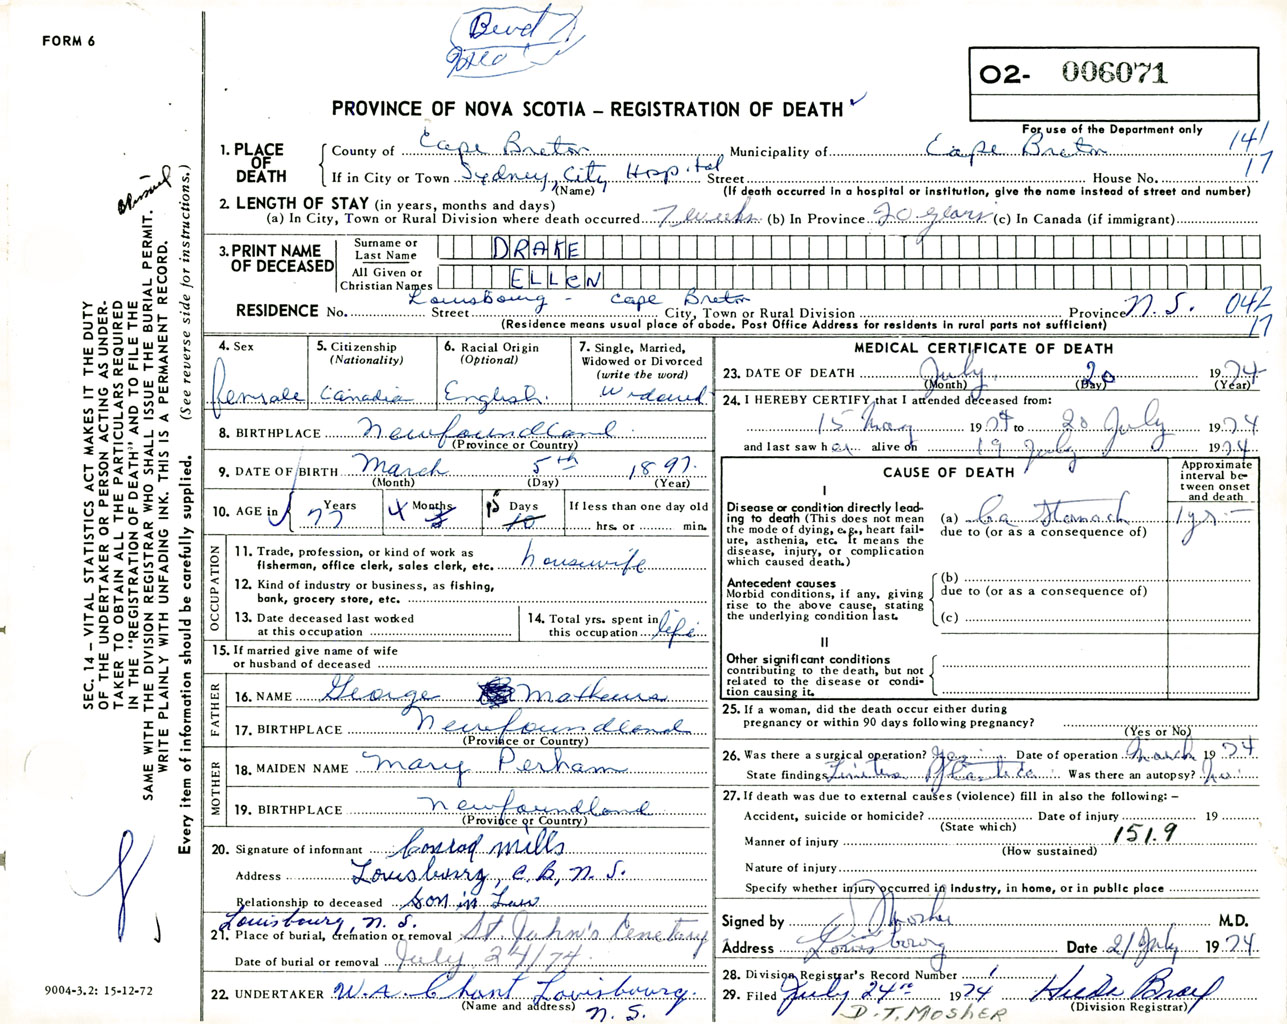 FORM 6
O2- 006071
PROVINCE OF NOVA SCOTIA – REGISTRATION OF DEATH
For use of the Department only
1. PLACE OF DEATH
County of Cape Breton Municipality of Cape Breton 141/17
If in City or Town Sydney, City Hospital Street House No.
(Name) (If death occurred in a hospital or institution, give the name instead of street and number)
2. LENGTH OF STAY (in years, months and days)
(a) In City, Town or Rural Division where death occurred 7 weeks (b) In Province 20 years (c) In Canada (if immigrant)
3. PRINT NAME OF DECEASED
Surname or Last Name DRAKE
All Given or Christian Names ELLEN
Louisbourg - Cape Breton N.S. 042/17
RESIDENCE No. Street City, Town or Rural Division Province
(Residence means usual place of abode. Post Office Address for residents in rural parts not sufficient)
4. Sex female
5. Citizenship (Nationality) Canadia
6. Racial Origin (Optional) English
7. Single, Married, Widowed or Divorced (write the word) Widowed
8. BIRTHPLACE Newfoundland
(Province or Country)
9. DATE OF BIRTH March 5th 1897
(Month) (Day) (Year)
10. AGE in 77 Years 4 Months 15 Days 10 If less than one day old hrs. or min.
OCCUPATION
11. Trade, profession, or kind of work as fisherman, office clerk, sales clerk, etc. housewife
12. Kind of industry or business, as fishing, bank, grocery store, etc.
13. Date deceased last worked at this occupation
14. Total yrs. spent in this occupation life
15. If married give name of wife or husband of deceased
FATHER
16. NAME George Mathews
17. BIRTHPLACE Newfoundland
(Province or Country)
MOTHER
18. MAIDEN NAME Mary Perham
19. BIRTHPLACE Newfoundland
(Province or Country)
20. Signature of informant Conrad Mills
Address Louisbourg, C.B, N.S.
Relationship to deceased Son in Law
Louisbourg, N.S.
21. Place of burial, cremation or removal St John's Cemetary
Date of burial or removal July 24/74
22. UNDERTAKER W.A. Chant Louisbourg. N.S.
(Name and address)
MEDICAL CERTIFICATE OF DEATH
23. DATE OF DEATH July 20 1974
(Month) (Day) (Year)
24. I HEREBY CERTIFY that I attended deceased from:
15 May 1974 to 20 July 1974
and last saw her alive on 19 July 1974
CAUSE OF DEATH
Approximate interval between onset and death
I
Disease or condition directly leading to death (This does not mean the mode of dying, e.g., heart failure, asthenia, etc. It means the disease, injury, or complication which caused death.)
(a) Ca Stomach 1 yr.
due to (or as a consequence of)
Antecedent causes
Morbid conditions, if any, giving rise to the above cause, stating the underlying condition last.
(b)
due to (or as a consequence of)
(c)
II
Other significant conditions contributing to the death, but not related to the disease or condition causing it.
25. If a woman, did the death occur either during pregnancy or within 90 days following pregnancy?
(Yes or No)
26. Was there a surgical operation? Date of operation March 1974
State findings Was there an autopsy? no
27. If death was due to external causes (violence) fill in also the following: –
Accident, suicide or homicide? Date of injury 19
(State which)
Manner of injury 151.9
(How sustained)
Nature of injury
Specify whether injury occurred in industry, in home, or in public place
Signed by D. T. Mosher M.D.
Address Louisbourg Date 21 July 1974
28. Division Registrar's Record Number 1
29. Filed July 24th 1974 Hilda
(Division Registrar)
D.T. MOSHER
SEC. 14 – VITAL STATISTICS ACT MAKES IT THE DUTY
OF THE UNDERTAKER OR PERSON ACTING AS UNDER-
TAKER TO OBTAIN ALL THE PARTICULARS REQUIRED
IN THE "REGISTRATION OF DEATH" AND TO FILE THE
SAME WITH THE DIVISION REGISTRAR WHO SHALL ISSUE THE BURIAL PERMIT.
WRITE PLAINLY WITH UNFADING INK. THIS IS A PERMANENT RECORD.
Every item of information should be carefully supplied. (See reverse side for instructions.)
9004-3.2: 15-12-72